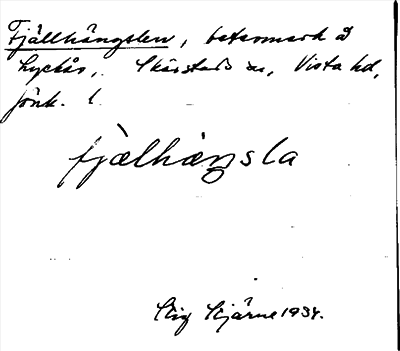 Fjällhängslen, betesmark å
Lyckås, Skärstads sn, Vista hd,
Jönk. l.
fjælhæŋsla
Stig Stjärne 1934.